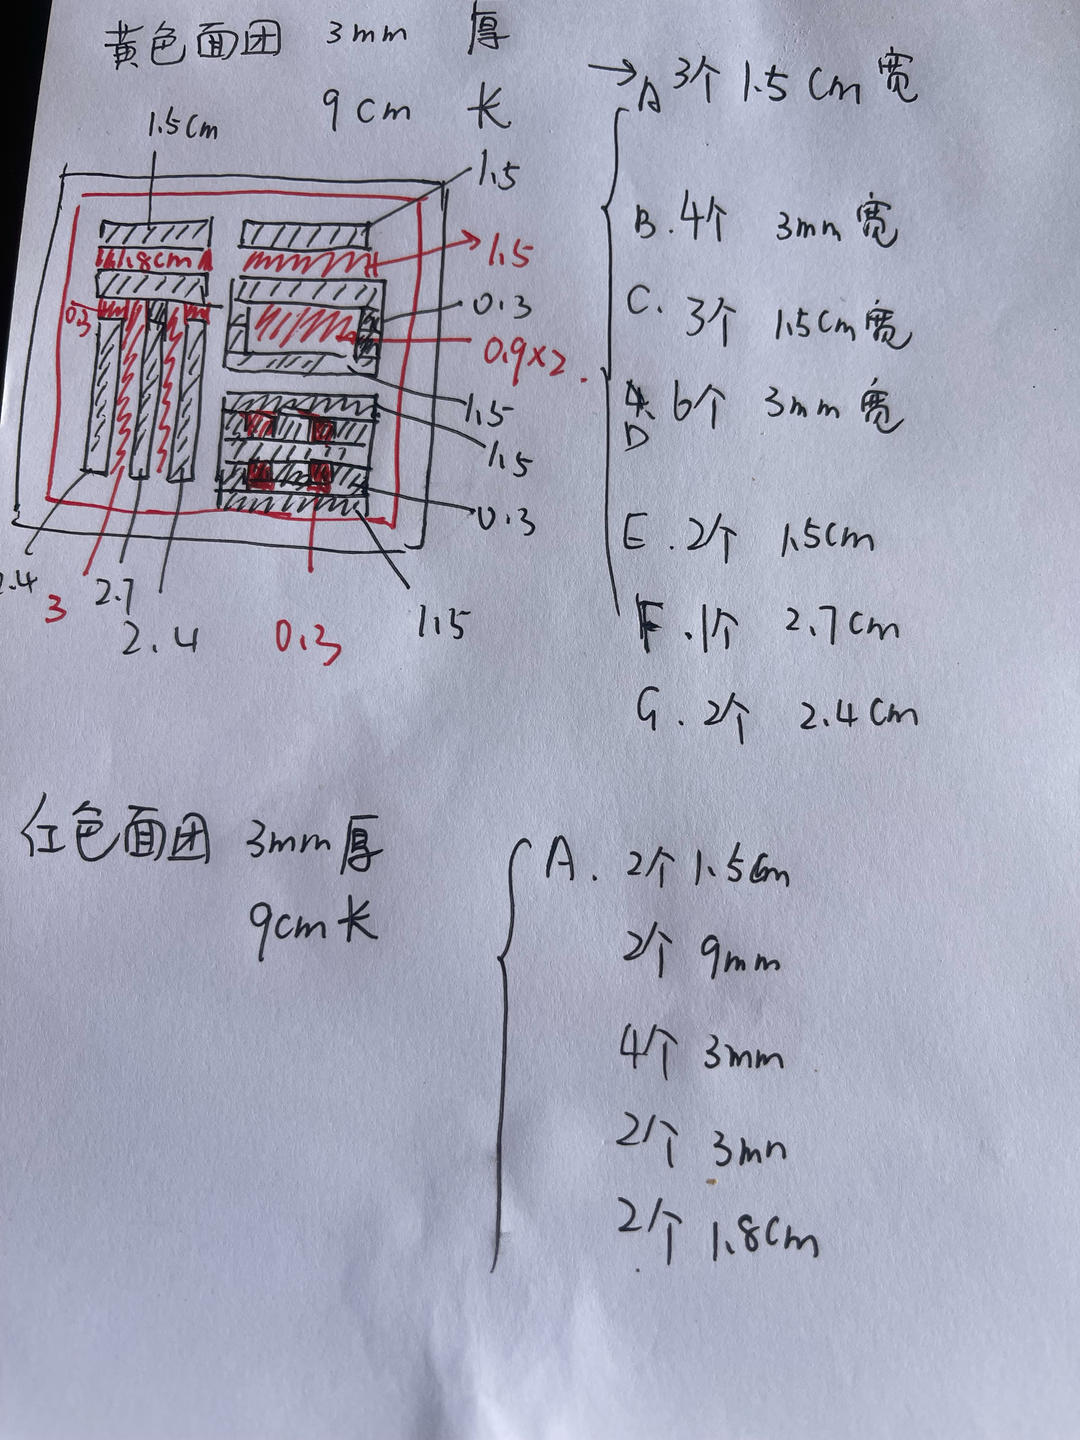 黄色面团 3mm 厚
9cm 长
→A 3个 1.5cm宽
B. 4个 3mm宽
C. 3个 1.5cm宽
D 6个 3mm宽
E. 2个 1.5cm
F. 1个 2.7cm
G. 2个 2.4cm
1.5cm
1.5
1.8cm
1.5
0.3
0.3
0.9×2
1.5
1.5
0.3
2.4
3
2.7
2.4
0.3
1.5
红色面团 3mm厚
9cm长
A. 2个 1.5cm
2个 9mm
4个 3mm
2个 3mm
2个 1.8cm